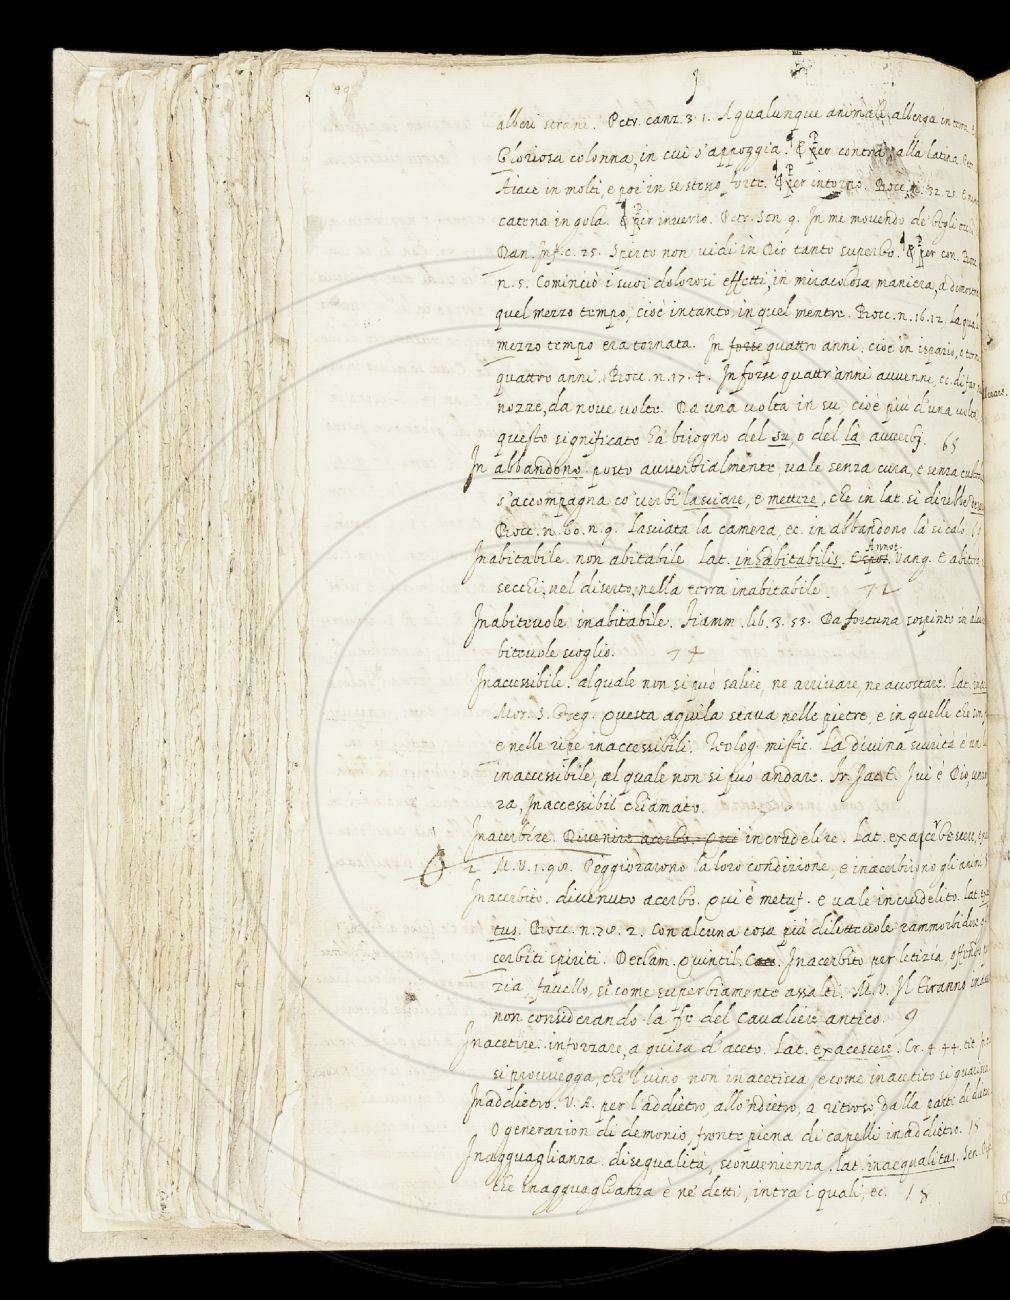 J
alberi strani. Petr. canz. 3. 1. A qualunque animale alberga in terra
Gloriosa colonna, in cui s'appoggia. ¶ P per contra alla latina.
Aiace in molti, e poi in se stesso forte. ¶ P per intorno. Bocc. n. 32. 21.
catena in gola. ¶ P per inverso. Petr. Son. 9. In me movendo de' begli occhi
Dan. Inf. c. 25. Spirto non vidi in Dio tanto superbo. ¶ P per con. Bocc
n. 5. Cominciò i suoi dolorosi effetti, in miracolosa maniera, a dimostrare
quel mezzo tempo, cioè intanto, in quel mentre. Bocc. n. 16. 12. La qual
mezzo tempo era tornata. In forse quattro anni. cioè in ispazio, o
quattro anni. Bocc. n. 17. 4. In forse quattr'anni avvenne, ec. di far
nozze, da nove volte. Da una volta in su, cioè più d'una volta
questo significato ha bisogno del su, o del là avverbj. 65
In abbandono posto avverbialmente vale senza cura, e senza
s'accompagna co' verbi lasciare, e mettere, che in lat. si direbbe
Bocc. n. 60. n. 9. Lasciata la camera, ec. in abbandono là si calò.
Inabitabile. non abitabile Lat. inhabitabilis. Annot. Vang. E
secchi, nel diserto, nella terra inabitabile. 72
Inabitevole inabitabile. Fiamm. lib. 3. 53. Da fortuna sospinto in
bitevole scoglio. 74
Inaccessibile. al quale non si può salire, ne arrivare, ne accostare. Lat.
Mor. S. Greg. Questa aquila stava nelle pietre, e in quelle che
e nelle ripe inaccessibili. Teolog. mistic. La divina scurità è un
inaccessibile, al quale non si può andare. Fr. Jac. T. Ivi è Dio,
ra, Inaccessibil chiamato.
Inacerbire. Divenire acerbo. Qui incrudelire. Lat. exacerbescere,
2 M. V. 1. 98. Peggiorarono la loro condizione, e inacerbirono gli animi
Inacerbito. divenuto acerbo. Qui è metaf. e vale incrudelito. Lat.
tus. Bocc. n. 78. 2. Con alcuna cosa più dilettevole rammorbidare
cerbiti spiriti. Declam. Quintil. C. Inacerbito per letizia,
zia, favellò, sì come superbiamente assalti. M. V. Il tiranno
non considerando la fe del cavaliere antico. 9
Inacetire. inforzare, a guisa d'aceto. Lat. exacescere. Cr. 4. 44. tit.
si provvegga, che 'l vino non inacetisca, e come inacetito si
Inaddietro. V. A. per l'addietro, allo 'ndietro, a ritroso dalla parte di
O generazion di demonio, fronte piena di capelli inaddietro. 15
Inagguaglianza. disegualità, sconvenienza. Lat. inaequalitas. Sen.
che inagguaglianza è ne' detti, intra i quali, ec. 18